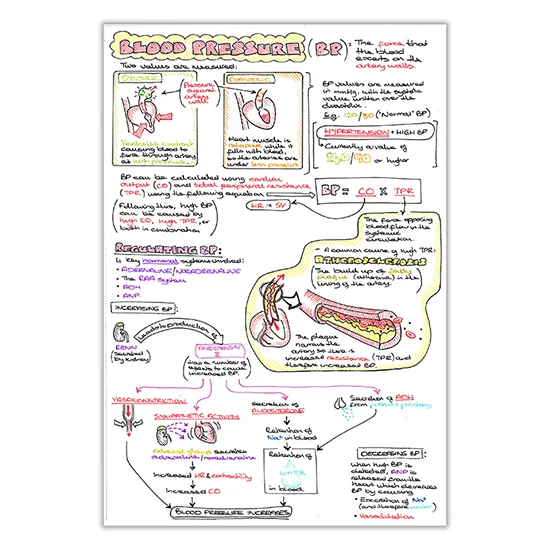 BLOOD PRESSURE (BP): The force that
the blood
exerts on the
artery walls.
Two values are measured:
SYSTOLIC
DIASTOLIC
(Pressure
against
artery
wall)
Ventricles contract
causing blood to
force through artery
at high pressure
Heart muscle is
relaxed, while it
fills with blood,
so the arteries are
under less pressure
BP values are measured
in mmHg, with the systolic
value written over the
diastolic.
E.g. 120/80 ("Normal" BP)
HYPERTENSION = HIGH BP
Currently a value of
140/90 or higher
BP can be calculated using cardiac
output (CO) and total peripheral resistance
(TPR) using the following equation
BP = CO X TPR
HR × SV
(Following this, high BP
can be caused by
high CO, high TPR, or
both in combination)
The force opposing
blood flow in the
systemic
circulation.
- A common cause of high TPR:
ATHEROSCLEROSIS
The build up of fatty
plaque (atheroma) in the
lining of the artery.
The plaque
narrows the
artery so there is
increased resistance (TPR) and
therefore increased BP.
REGULATING BP:
4 key hormonal systems involved:
• ADRENALINE/NORADRENALINE
• The RAA system
• ADH
• ANP
INCREASING BP:
RENIN
secreted
by kidney
Leads to production of
ANGIOTENSIN
II
Has a number of
effects to cause
increased BP.
VASOCONSTRICTION
SYMPATHETIC ACTIVITY
Adrenal gland secretes
adrenaline/noradrenaline
Increased HR & contractility
Increased CO
Secretion of
ALDOSTERONE
Retention of
Na+ in blood
Retention of
WATER
in blood
Secretion of ADH
from pituitary
BLOOD PRESSURE INCREASES
DECREASING BP:
When high BP
is detected, ANP is
released from the
heart which decreases
BP by causing
• Excretion of Na+
(and therefore water)
• Vasodilation